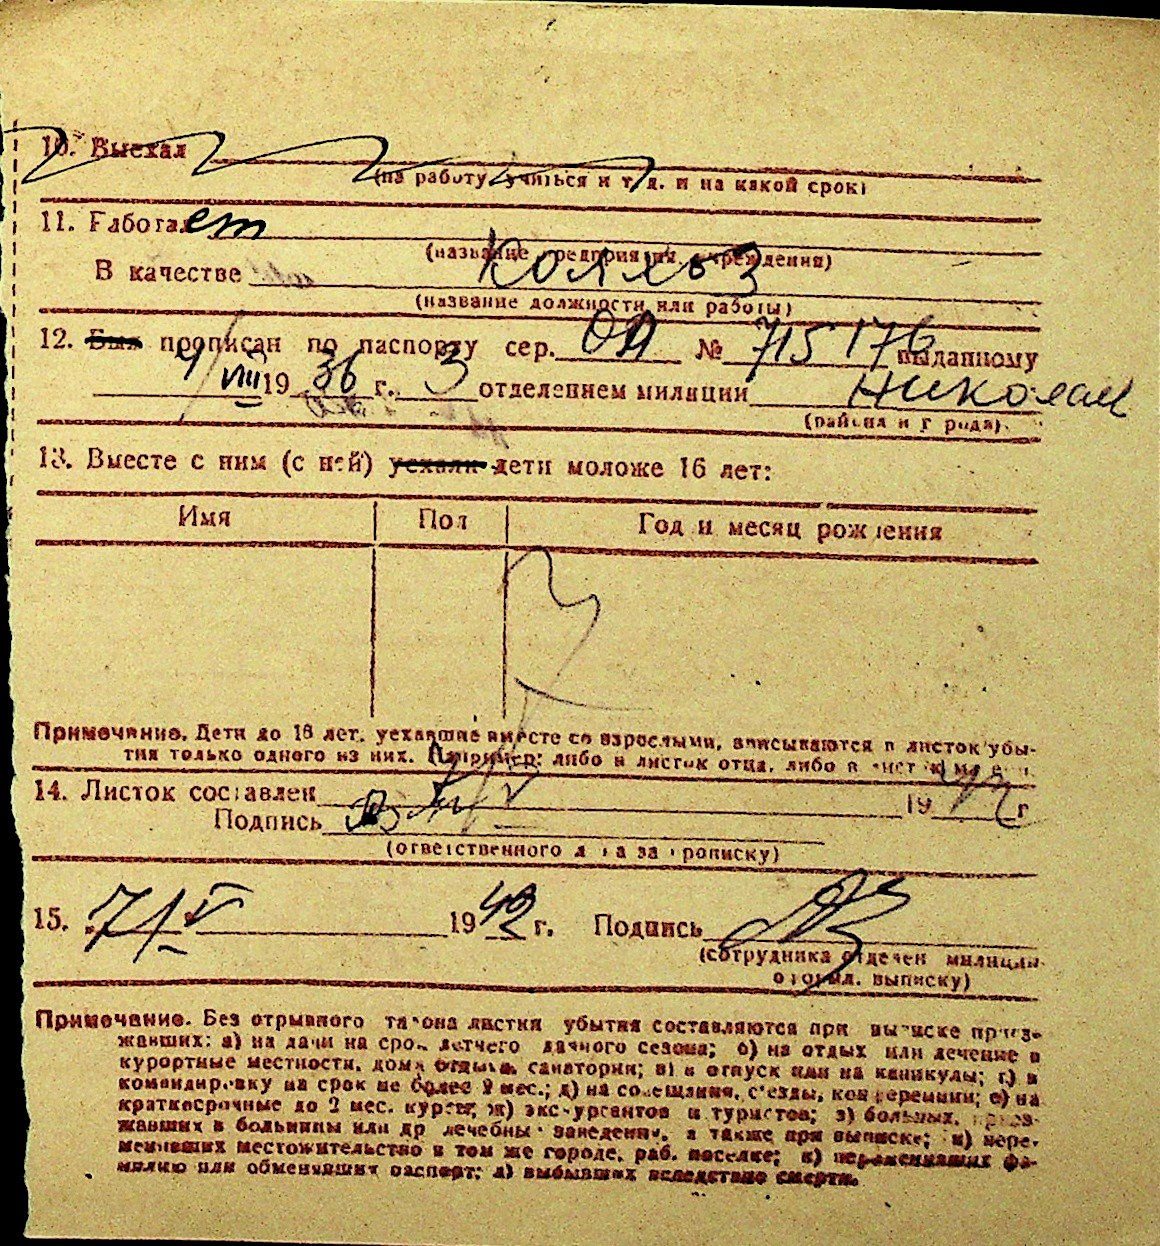 10. Выехал
(на работу, учиться и т. д. и на какой срок)
11. Работает
(название предприятия, учреждения)
В качестве Колхоз
(название должности или работы)
12. Был прописан по паспорту сер. № 715176 выданному
4/VIII 1936 г. 3 отделением милиции Николаев
(района и города)
13. Вместе с ним (с ней) уехали дети моложе 16 лет:
Имя Пол Год и месяц рождения
Примечание. Дети до 16 лет, уехавшие вместе со взрослыми, вписываются в листок убы-
тия только одного из них. Например: либо в листок отца, либо в листок матери.
14. Листок составлен 1942 г
Подпись
(ответственного лица за прописку)
15. 7/V 1942 г. Подпись
(сотрудника отделен милиции
оформл. выписку)
Примечание. Без отрывного талона листки убытия составляются при выписке приез-
жавших: а) на дачи на срок летнего дачного сезона; б) на отдых или лечение в
курортные местности, дома отдыха, санатории; в) в отпуск или на каникулы; г) в
командировку на срок не более 2 мес.; д) на совещания, съезды, конференции; е) на
краткосрочные до 2 мес. курсы; ж) экскурсантов и туристов; з) больных, приез-
жавших в больницы или др лечебны заведения, а также при выписке; и) пере-
менивших местожительство в том же городе, раб. поселке; к) переменивших фа-
милию или обменявших паспорт; л) выбывших вследствие смерти.